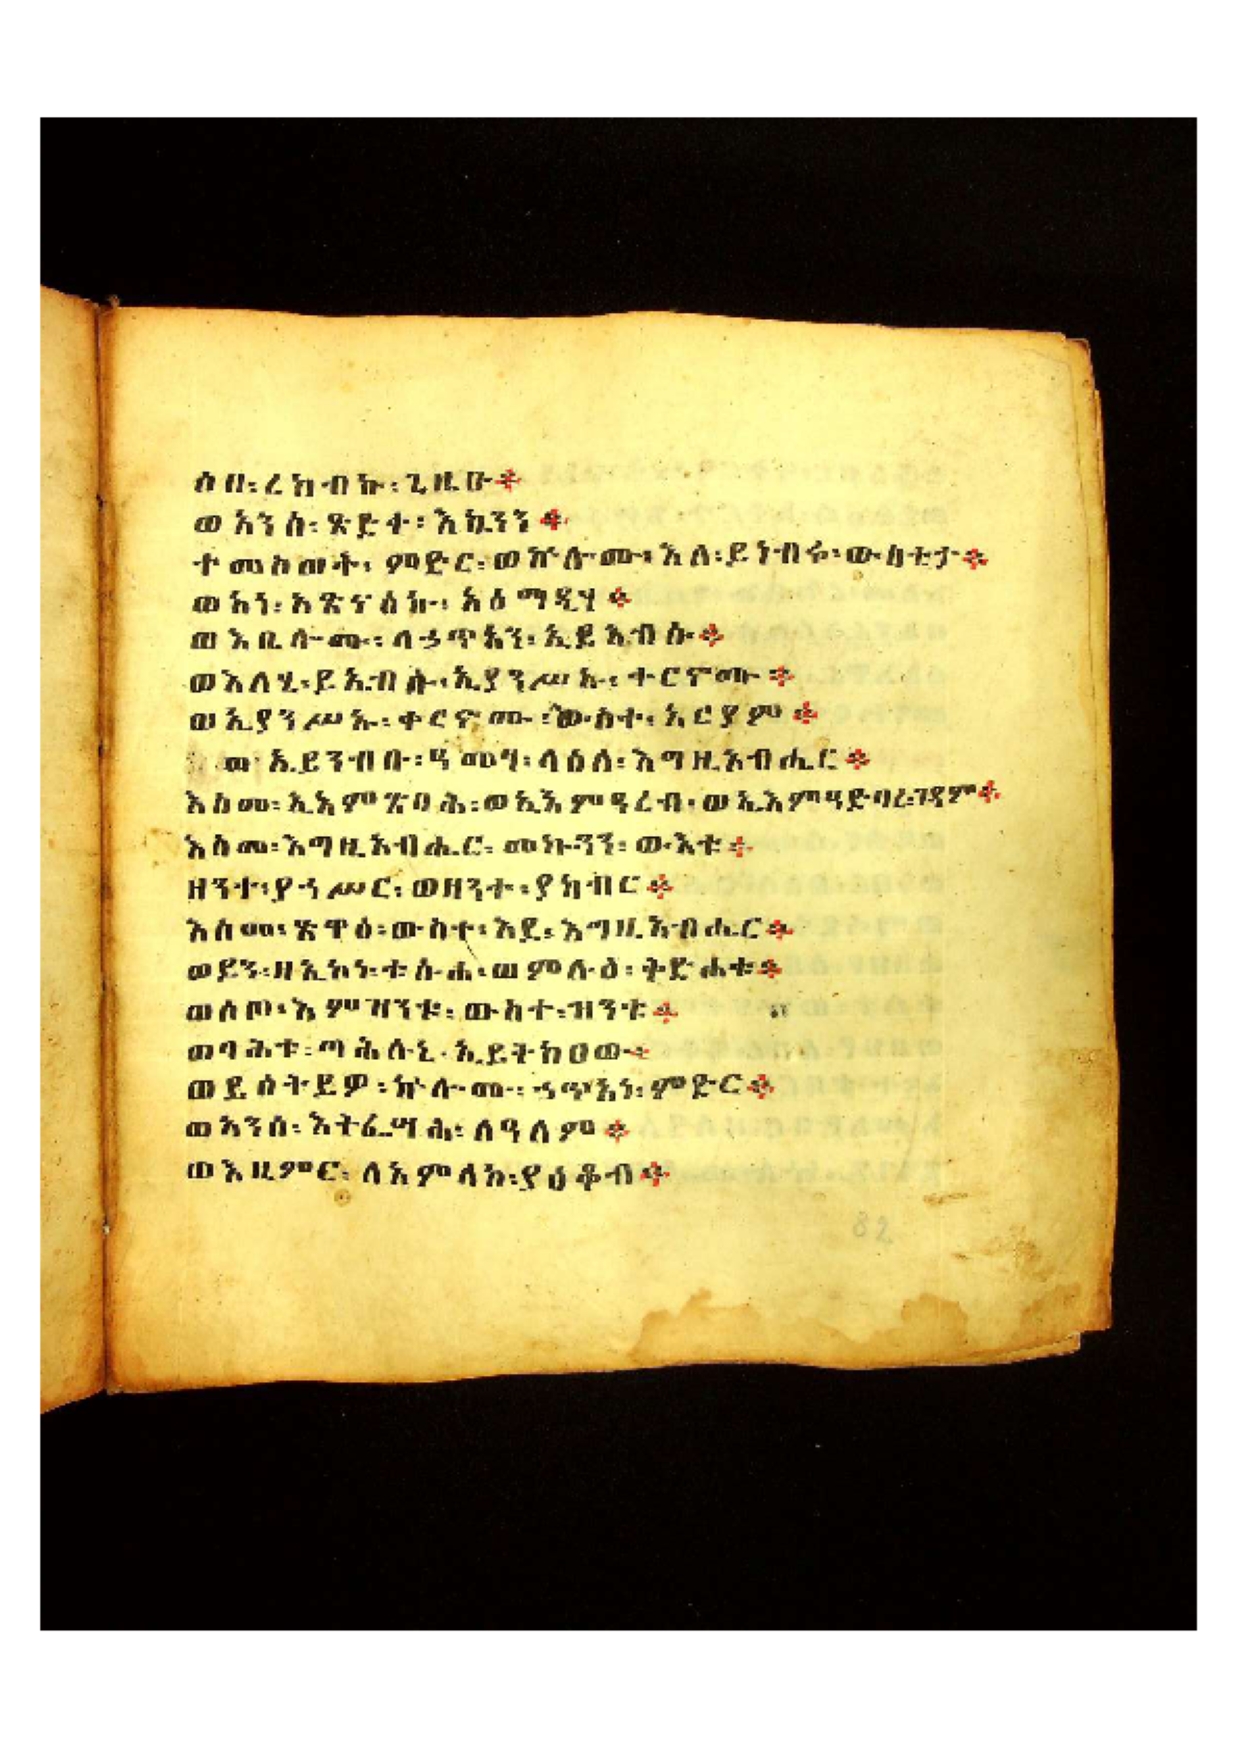 ሶበ፡ረከብኩ፡ጊዜሁ፨
ወአንሰ፡ጽድቀ፡እኴንን፨
ተመሰወት፡ምድር፡ወኵሎሙ፡እለ፡ይነብሩ፡ውስቴታ፨
ወአነ፡አጽናዕኩ፡አዕማዲሃ፨
ወእቤሎሙ፡ለኃጥአን፡ኢይአብሱ፨
ወእለሂ፡ይኤብሱ፡ኢያንሥኡ፡ቀርኖሙ፨
ወኢያንሥኡ፡ቀርኖሙ፡ውስተ፡አርያም፨
ወኢይንብቡ፡ዓመፃ፡ላዕለ፡እግዚአብሔር፨
እስመ፡ኢእምጽባሕ፡ወኢእምዓረብ፡ወኢእምዓድባረ፡ገዳም፨
እስመ፡እግዚአብሔር፡መኰንን፡ውእቱ፨
ዘንተ፡ያኀሥር፡ወዘንተ፡ያከብር፨
እስመ፡ጽዋዕ፡ውስተ፡እደ፡እግዚአብሔር፨
ወይን፡ዘኢኮነ፡ቱሱሐ፡ወምሉዕ፡ትድሐቱ፨
ወሶጦ፡እምዝንቱ፡ውስተ፡ዝንቱ፨
ወባሕቱ፡ጣሕሉኒ፡ኢይትከዐው፨
ወይሰትይዎ፡ኵሎሙ፡ኀጥአነ፡ምድር፨
ወአንሰ፡እትፌሣሕ፡ለዓለም፨
ወእዜምር፡ለአምላከ፡ያዕቆብ፨
82